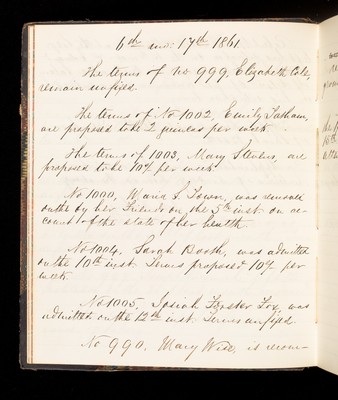 6th mo: 17th 1861
The terms of No 999, Elizabeth Cole,
remain unfixed.
The terms of No 1002, Emily Tatham,
are proposed to be 2 guineas per week.
The terms of 1003, Mary Stevens, are
proposed to be 10/ per week
No 1000, Maria S. Town, was removed
on the by her Friends on the 5th inst. on ac-
count of the state of her health
No 1004, Sarah Booth, was admitted
on the 10th inst. Terms proposed 10/ per
week.
No 1005, Josiah Forster Fox, was
admitted on the 12th inst. Terms unfixed.
No 990, Mary Wise, is recom-